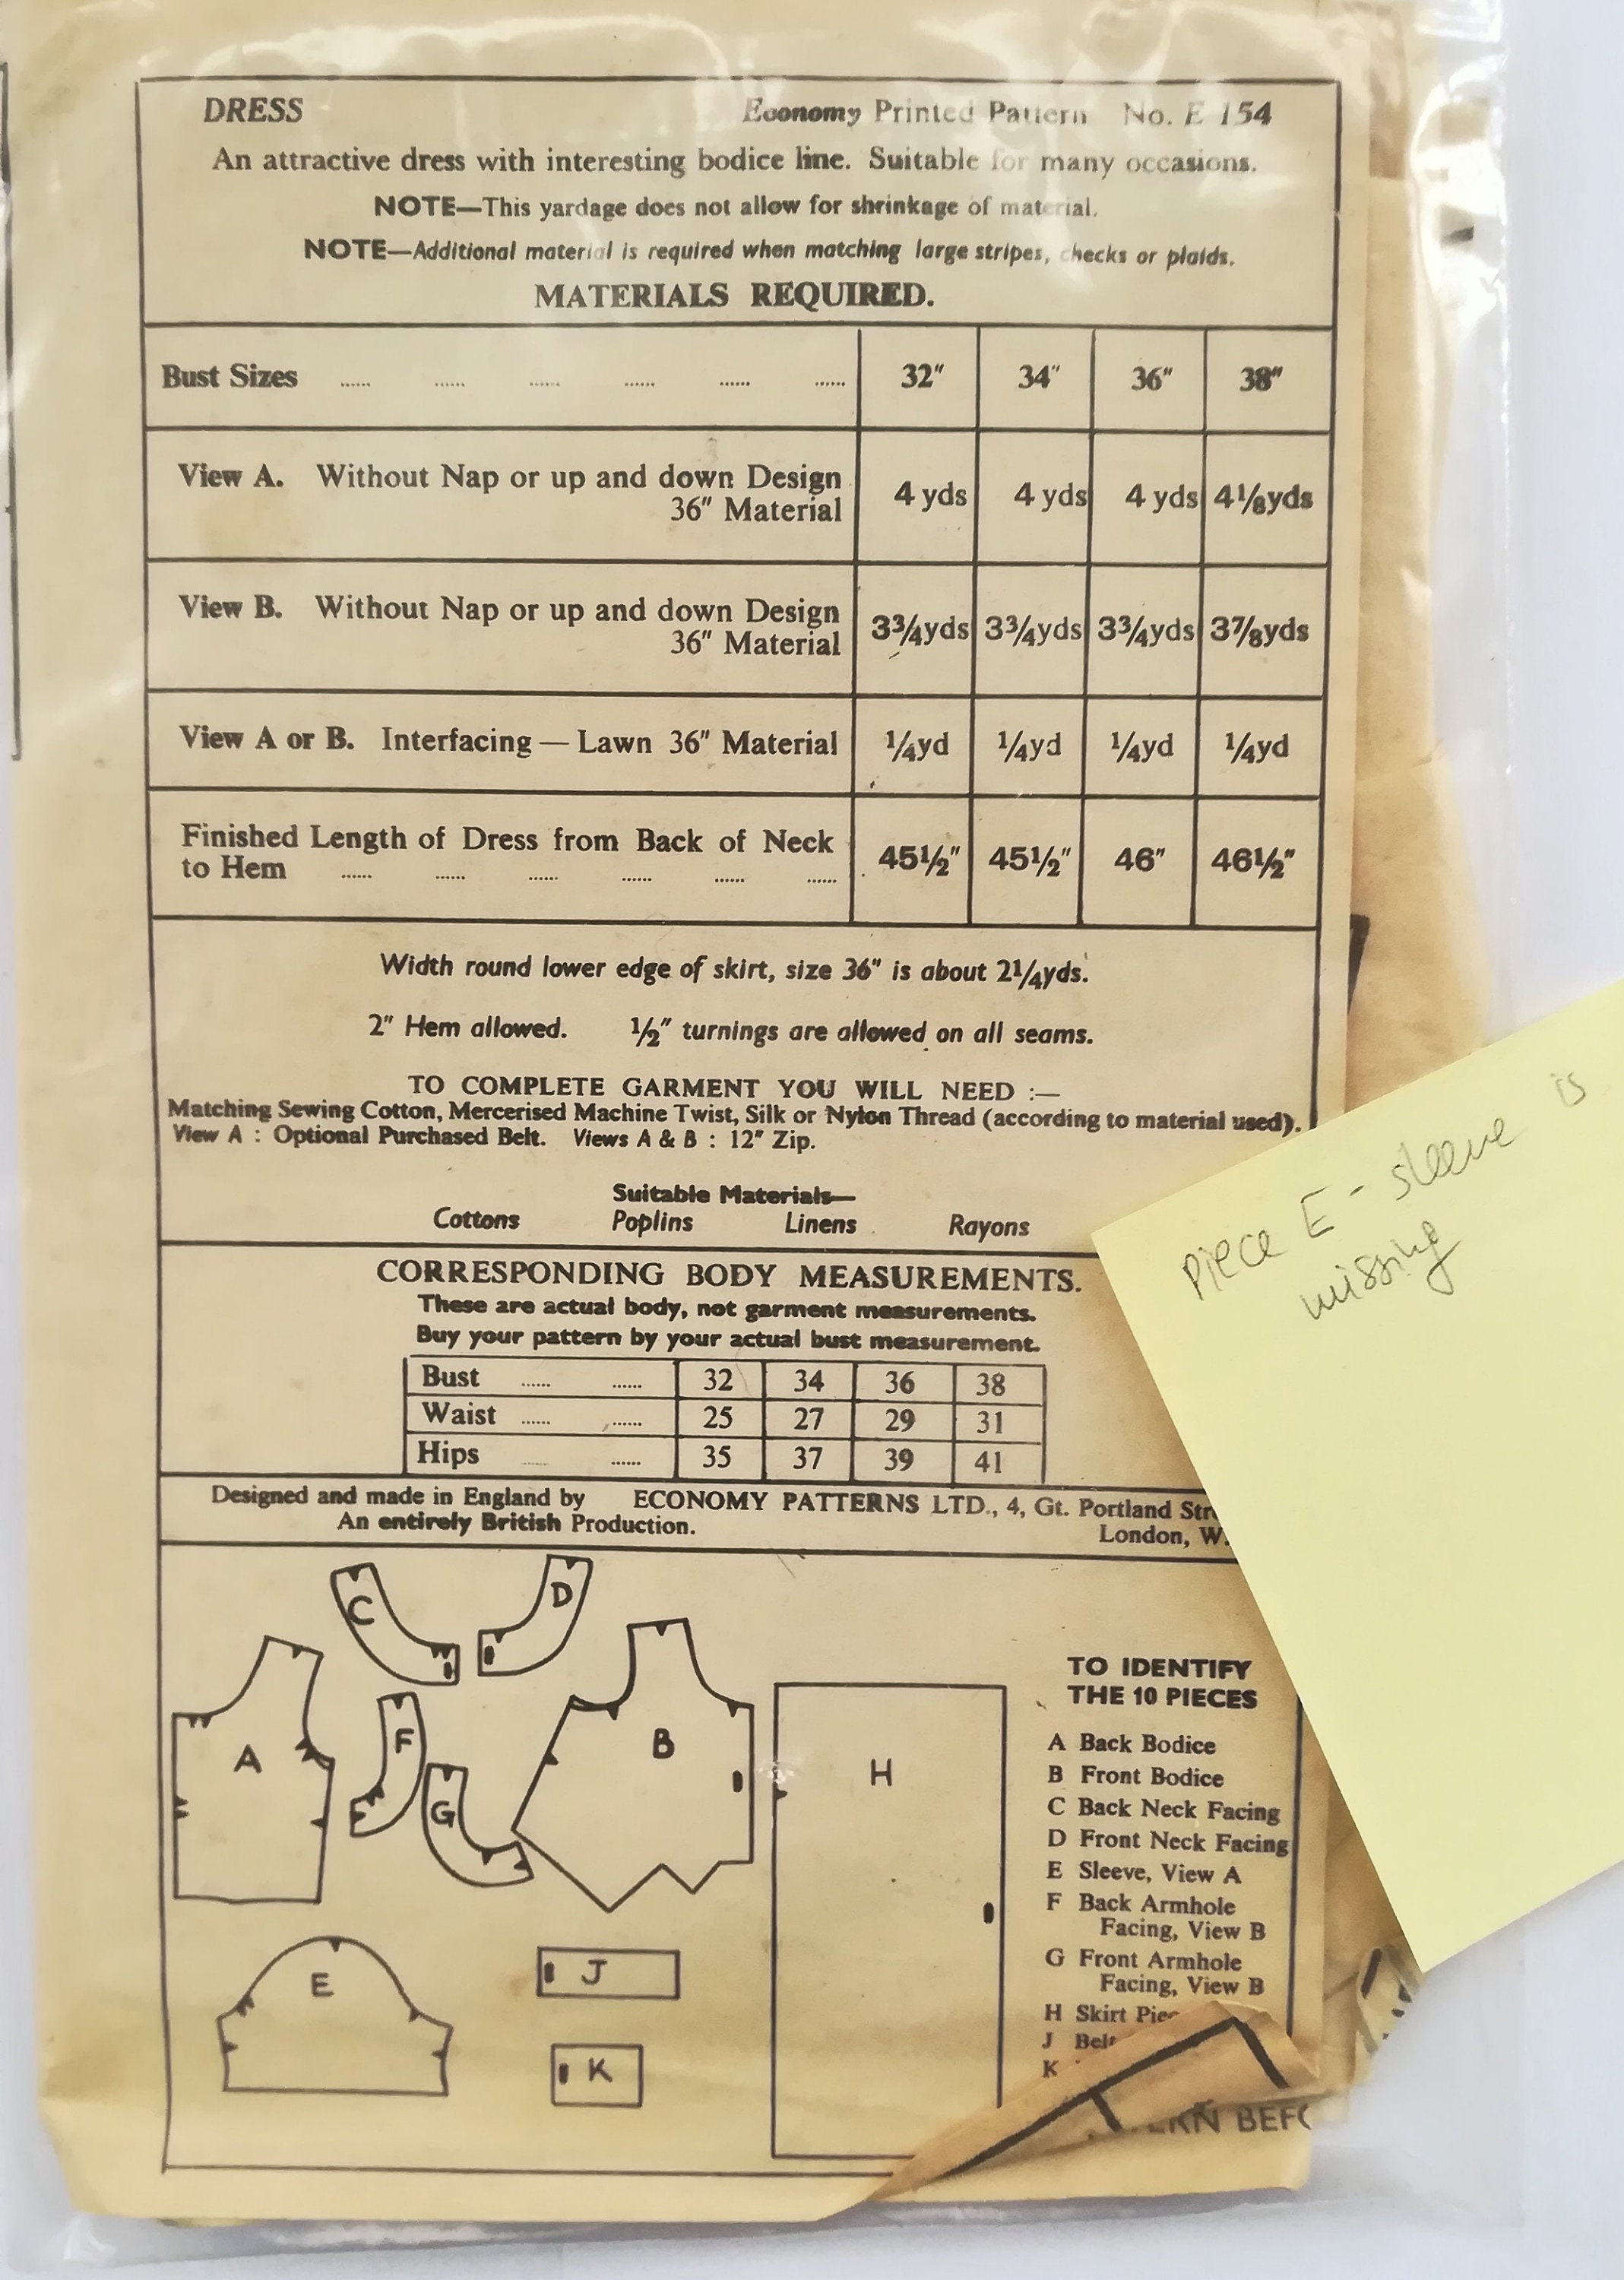 DRESS Economy Printed Pattern No. E 154
An attractive dress with interesting bodice line. Suitable for many occasions.
NOTE—This yardage does not allow for shrinkage of material.
NOTE—Additional material is required when matching large stripes, checks or plaids.
MATERIALS REQUIRED.
Bust Sizes ...... ...... ...... ...... ...... ...... 32" 34" 36" 38"
View A. Without Nap or up and down Design
36" Material 4 yds 4 yds 4 yds 4⅛yds
View B. Without Nap or up and down Design
36" Material 3¾yds 3¾yds 3¾yds 3⅞yds
View A or B. Interfacing — Lawn 36" Material ¼yd ¼yd ¼yd ¼yd
Finished Length of Dress from Back of Neck
to Hem ...... ...... ...... ...... ...... ...... 45½" 45½" 46" 46½"
Width round lower edge of skirt, size 36" is about 2¼yds.
2" Hem allowed. ½" turnings are allowed on all seams.
TO COMPLETE GARMENT YOU WILL NEED :—
Matching Sewing Cotton, Mercerised Machine Twist, Silk or Nylon Thread (according to material used).
View A : Optional Purchased Belt. Views A & B : 12" Zip.
Suitable Materials—
Cottons Poplins Linens Rayons
CORRESPONDING BODY MEASUREMENTS.
These are actual body, not garment measurements.
Buy your pattern by your actual bust measurement.
Bust ...... ...... 32 34 36 38
Waist ...... ...... 25 27 29 31
Hips ...... ...... 35 37 39 41
Designed and made in England by ECONOMY PATTERNS LTD., 4, Gt. Portland
An entirely British Production. London, W.
Piece E - sleeve is
missing
C
D
A
F
G
B
H
E
J
K
TO IDENTIFY
THE 10 PIECES
A Back Bodice
B Front Bodice
C Back Neck Facing
D Front Neck Facing
E Sleeve, View A
F Back Armhole
Facing, View B
G Front Armhole
Facing, View B
H Skirt
J
K